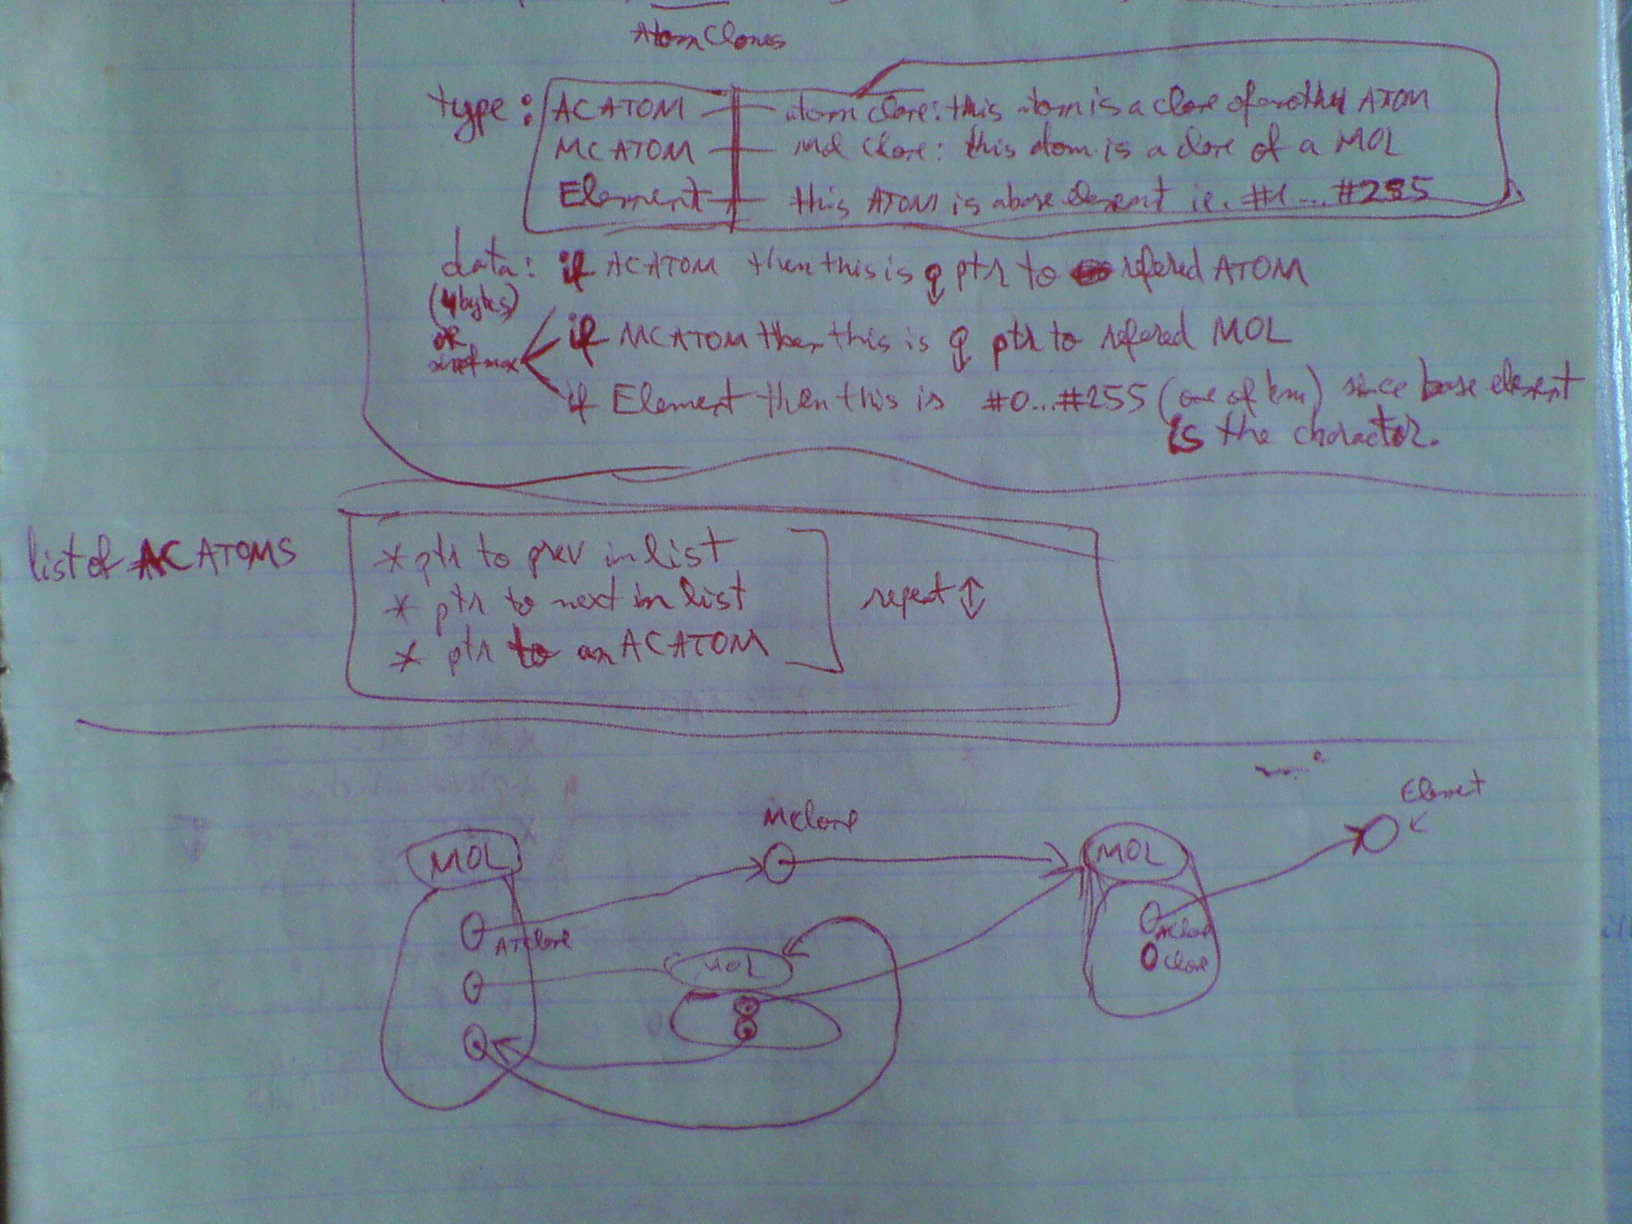 Atom Clones
type: ACATOM — atom clone: this atom is a clone of another ATOM
MCATOM — Mol Clone: this atom is a clone of a MOL
Element — this ATOM is a base element ie. #1...#255
data: if ACATOM then this is a ptr to refered ATOM
(4bytes)
or
if MCATOM then this is a ptr to refered MOL
if Element then this is #0...#255 (one of them) since base element
is the character.
list of ACATOMS
* ptr to prev in list
* ptr to next in list
* ptr to an ACATOM
repeat
MClone
Element
MOL
MOL
ATclone
AClone
MOL
Clone